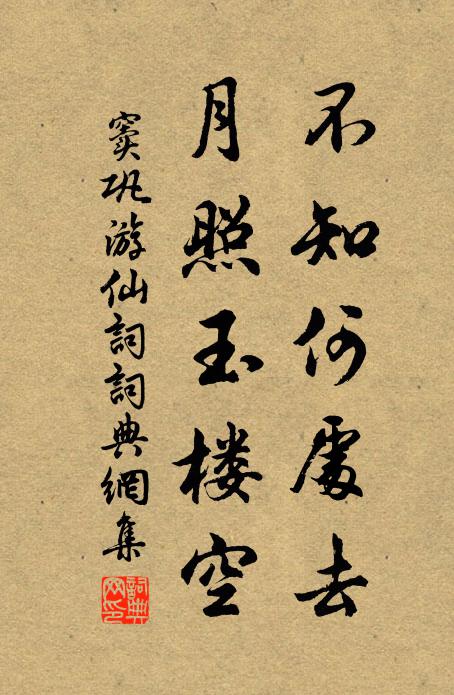 不知何處去
月照玉楼空
窦巩游仙詞詞典網集
詞典网印